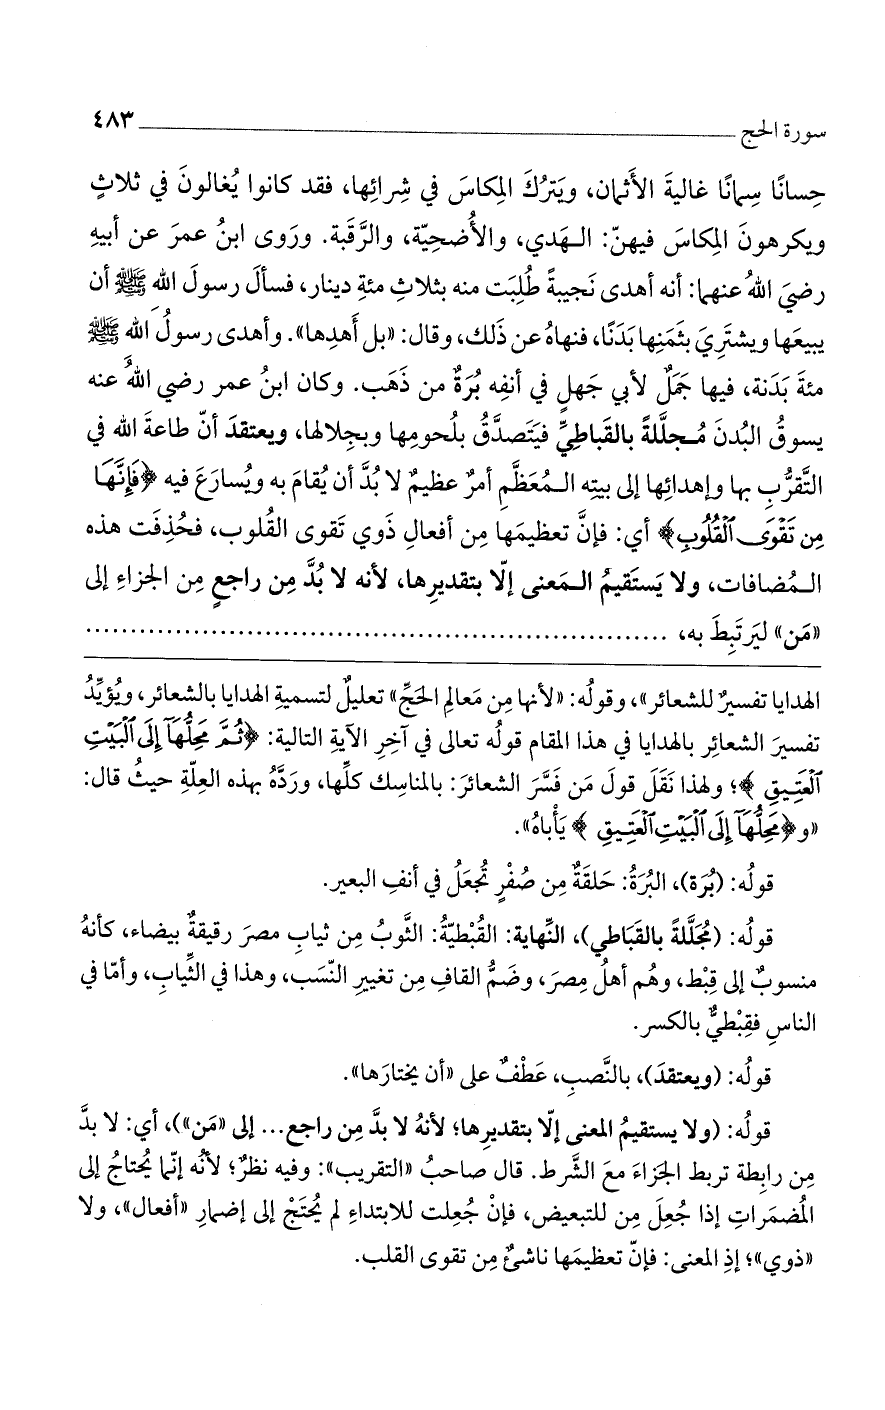 سورة الحج ٤٨٣
حِسانًا سِمانًا غالية الأَثمان، ويَترُكَ المِكاسَ في شِرائِها، فقد كانوا يُغالونَ في ثلاثٍ
ويكرهونَ المِكاسَ فيهنّ: الـهَدي، والأُضحِيّة، والرَّقَبة. ورَوى ابنُ عمرَ عن أبيهِ
رضيَ اللهُ عنهما: أنه أهدى نَجيبةً طُلِبَت منه بثلاثِ مئةِ دينار، فسألَ رسولَ الله ﷺ أن
يبيعَها ويشتَرِيَ بثَمَنِها بَدَنًا، فنهاهُ عن ذلك، وقال: «بل أَهدِها». وأهدى رسولُ الله ﷺ
مئةَ بَدَنة، فيها جَمَلٌ لأبي جَهلٍ في أنفِه بُرَةٌ من ذَهَب. وكان ابنُ عمر رضي اللهُ عنه
يسوقُ البُدنَ مُـجلَّلةً بالقَباطِيِّ فيَتَصدَّقُ بلُحومِها وبجِلالها، ويعتقدَ أنّ طاعةَ الله في
التَّقرُّبِ بها وإهدائِها إلى بيتِه الـمُعَظَّمِ أمرٌ عظيمٌ لا بُدَّ أن يُقامَ به ويُسارَعَ فيه ﴿فَإِنَّهَا
مِن تَقْوَى ٱلْقُلُوبِ﴾ أي: فإنَّ تعظيمَها مِن أفعالِ ذَوي تَقوى القُلوب، فحُذِفَت هذه
الـمُضافات، ولا يَستَقيمُ الـمَعنى إلّا بتقديرِها، لأنه لا بُدَّ مِن راجعٍ مِن الجزاءِ إلى
«مَن» ليَرتَبِطَ به، ................................................................
الهدايا تفسيرٌ للشعائر»، وقولُه: «لأنها مِن مَعالمِ الحَجِّ» تعليلٌ لتسميةِ الهدايا بالشعائر، ويُؤيِّدُ
تفسيرَ الشعائِرِ بالهدايا في هذا المقامِ قولُه تعالى في آخِرِ الآيةِ التالية: ﴿ثُمَّ مَحِلُّهَآ إِلَى ٱلْبَيْتِ
ٱلْعَتِيقِ﴾؛ ولهذا نَقَلَ قولَ مَن فَسَّرَ الشعائرَ: بالمناسِك كلِّها، ورَدَّهُ بهذه العِلّةِ حيثُ قال:
«و﴿مَحِلُّهَآ إِلَى ٱلْبَيْتِ ٱلْعَتِيقِ﴾ يَأْباهُ».
قولُه: (بُرَة)، البُرَةُ: حَلقَةٌ مِن صُفْرٍ تُجعَلُ في أنفِ البعير.
قولُه: (مُجَلَّلةً بالقَبَاطي)، النِّهاية: القُبْطيّةُ: الثَّوبُ مِن ثيابِ مصرَ رقيقةٌ بيضاء، كأنهُ
منسوبٌ إلى قِبْط، وهُم أهلُ مِصرَ، وضَمُّ القافِ مِن تغييرِ النّسَب، وهذا في الثِّيابِ، وأمّا في
الناسِ فقِبْطيٌّ بالكسر.
قولُه: (ويعتقدَ)، بالنَّصبِ، عَطْفٌ على «أن يختارَها».
قولُه: (ولا يستقيمُ المعنى إلّا بتقديرِها؛ لأنهُ لا بدَّ مِن راجع... إلى «مَن»)، أي: لا بدَّ
مِن رابِطة تربط الجزاءَ معَ الشَّرط. قال صاحبُ «التقريب»: وفيه نظرٌ؛ لأنّه إنّما يُحتاجُ إلى
المُضمَراتِ إذا جُعِلَ مِن للتبعيض، فإنْ جُعِلت للابتداءِ لم يُحتَجْ إلى إضمارِ «أفعال»، ولا
«ذوي»؛ إذِ المعنى: فإنّ تعظيمَها ناشئٌ مِن تقوى القلب.